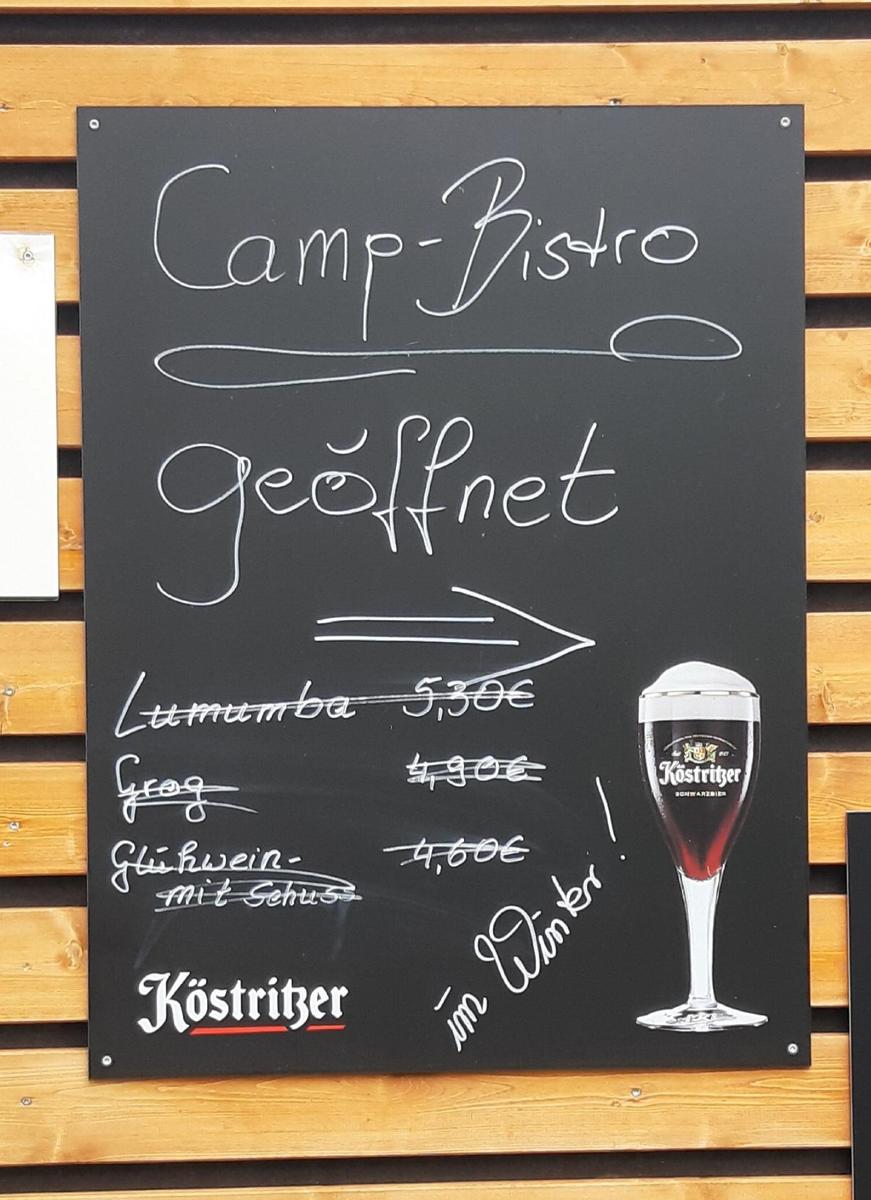 Camp-Bistro
geöffnet
Lumumba 5,30€
Grog 4,90€
Glühwein- 4,60€
mit Schuss
im Winter!
Köstritzer
Köstritzer
SCHWARZBIER